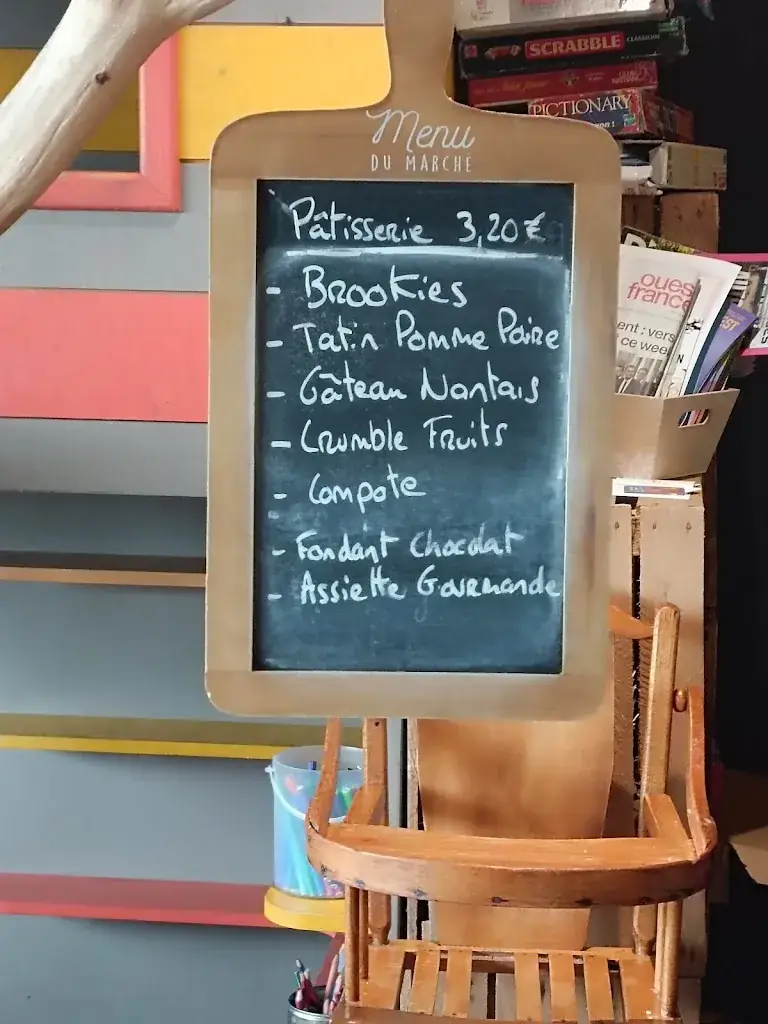 SCRABBLE
PICTIONARY
Menu
DU MARCHE
Pâtisserie 3,20 €
- Brookies
- Tatin Pomme Poire
- Gâteau Nantais
- Crumble Fruits
- Compote
- Fondant Chocolat
- Assiette Gourmande
oues
france
ent : vers
ce wee